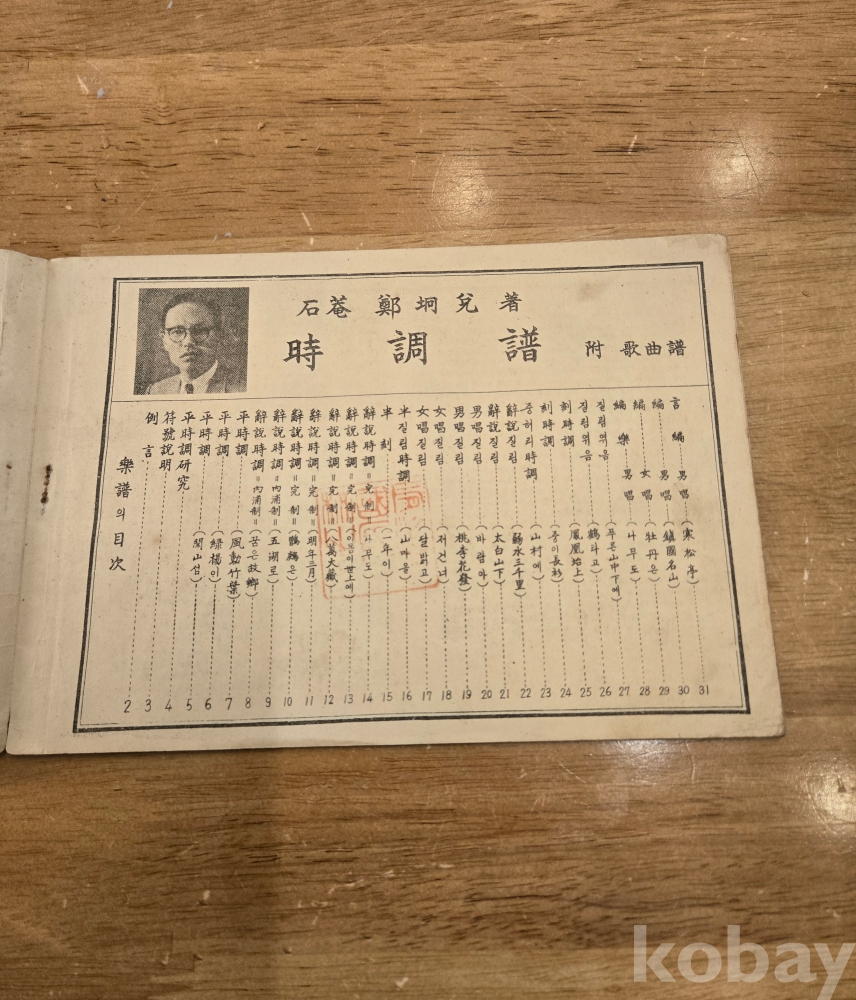 石菴 鄭坰兌 著
時調譜 附 歌曲譜
樂譜의目次 2
例言 3
符號說明 4
平時調研究 5
平時調 (關山섬) 6
平時調 (綠楊이) 7
平時調 (風動竹葉) 8
辭說時調=內浦制= (꿈은故鄕) 9
辭說時調=內浦制= (五湖로) 10
辭說時調=完制= (鸚鵡은) 11
辭說時調=完制= (明年三月) 12
辭說時調=完制= (八萬大藏) 13
辭說時調=完制= (이몸이世上에) 14
辭說時調=完制= (나무도) 15
半刻 (一年이) 16
半질림時調 (山마을) 17
女唱질림 (달밝고) 18
女唱질림 (저건너) 19
男唱질림 (桃李花發) 20
男唱질림 (바람아) 21
辭說질림 (太白山下) 22
辭說질림 (弱水三千里) 23
중허리時調 (山村에) 24
刻時調 (중이長衫) 25
刻時調 (鳳凰坮上) 26
질림엮음 (鶴타고) 27
질림엮음 (푸른山中下에) 28
編樂 男唱 (나무도)
編 女唱 (牡丹은) 29
編 男唱 (鎭國名山) 30
言編 男唱 (寒松亭) 31
kobay